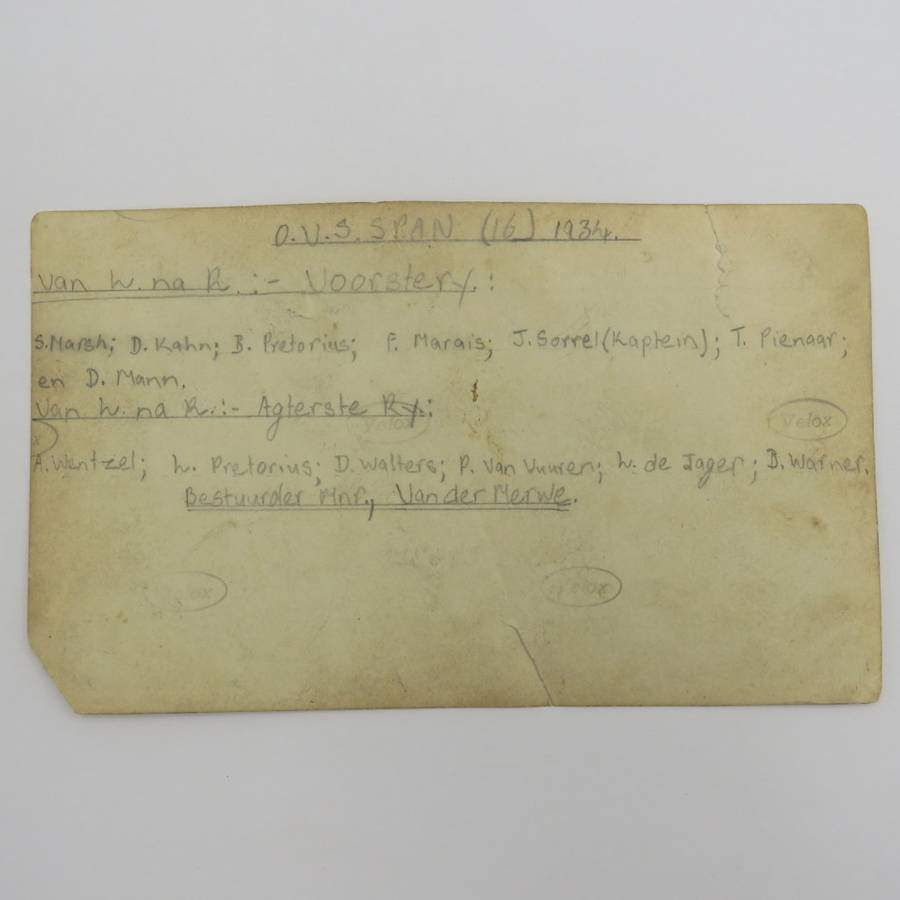 O.V.S. SPAN (16) 1934.
Van L. na R. :- Voorste ry. :
S. Marsh; D. Kahn; B. Pretorius; F. Marais; J. Sorrel (Kaptein); T. Pienaar;
en D. Mann.
Van L. na R. :- Agterste Ry. :
Velox
Velox
A. Wentzel; L. Pretorius; D. Walters; P. Van Vuuren; L. de Jager; B. Warner.
Bestuurder Mnr., Van der Merwe.
Velox